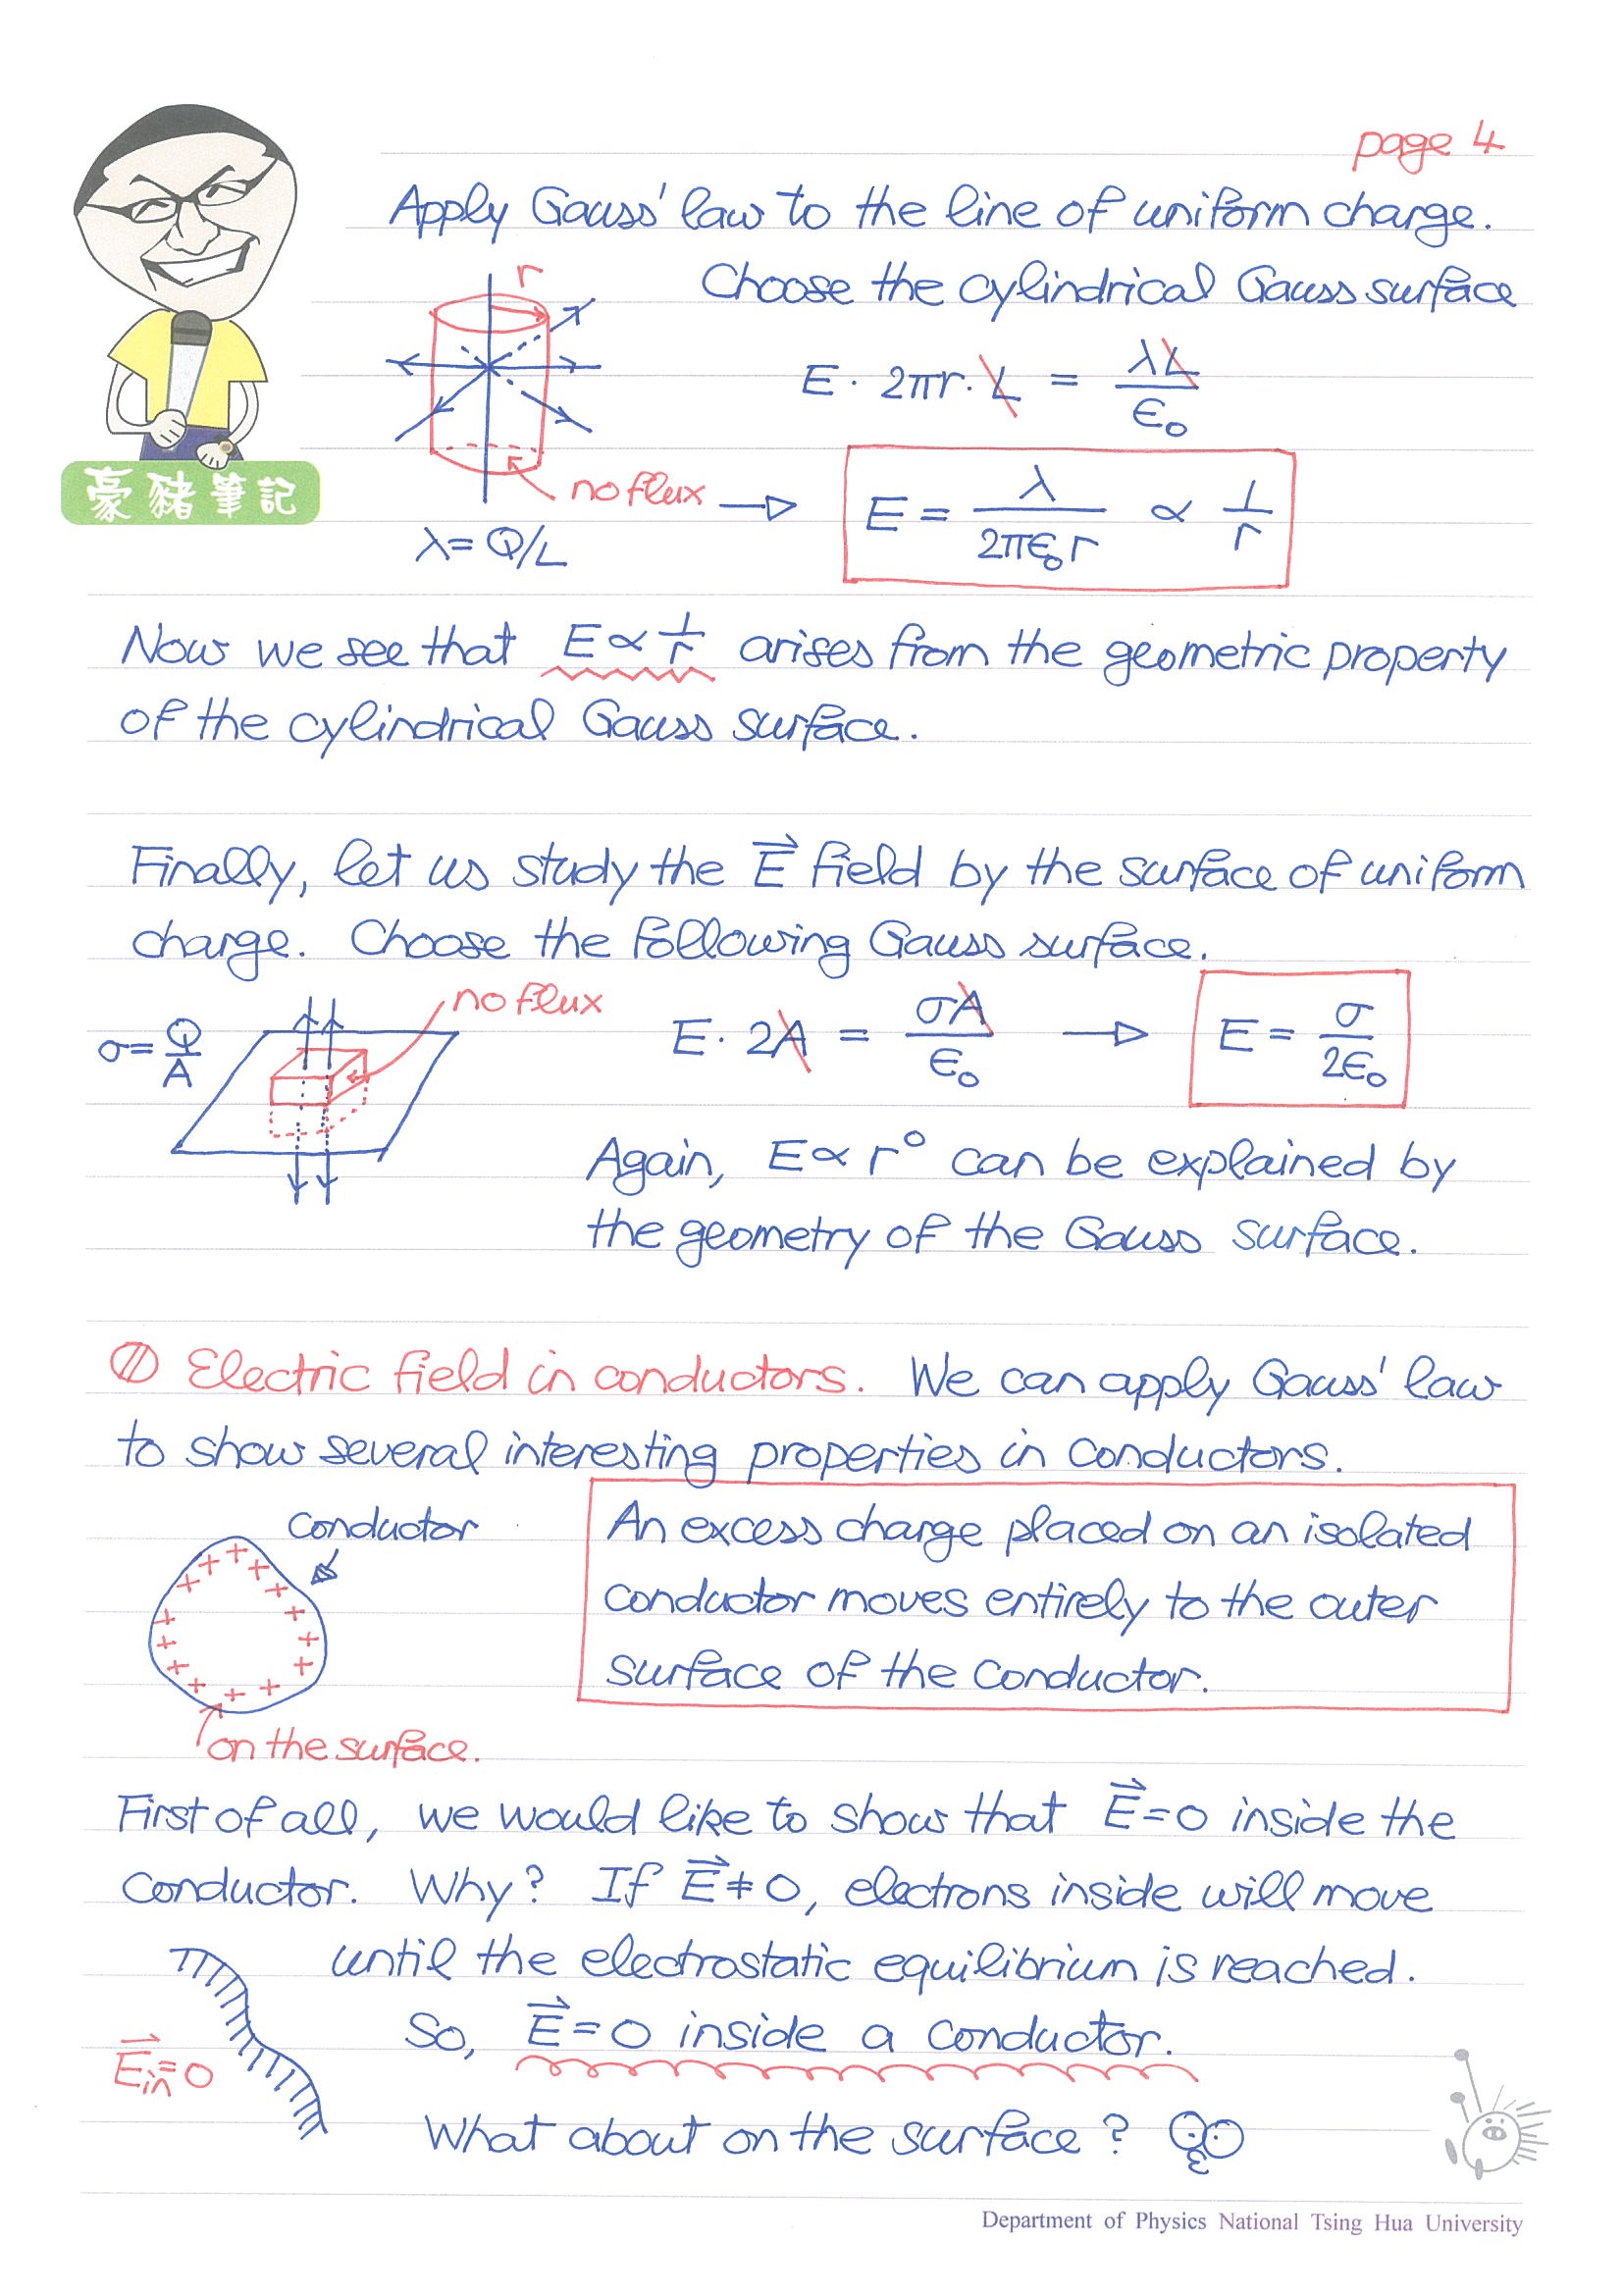 page 4
Apply Gauss' law to the line of uniform charge.
Choose the cylindrical Gauss surface
r
E · 2πr · L = λL/ε₀
豪豬筆記
no flux → E = λ/2πε₀r ∝ 1/r
λ = Q/L
Now we see that E ∝ 1/r arises from the geometric property
of the cylindrical Gauss surface.
Finally, let us study the E⃗ field by the surface of uniform
charge. Choose the following Gauss surface.
no flux
σ = Q/A
E · 2A = σA/ε₀ → E = σ/2ε₀
Again, E ∝ r⁰ can be explained by
the geometry of the Gauss surface.
Electric field in conductors. We can apply Gauss' law
to show several interesting properties in conductors.
conductor
An excess charge placed on an isolated
conductor moves entirely to the outer
surface of the conductor.
+ + + + + + + + + + + + + + + +
on the surface.
First of all, we would like to show that E⃗ = 0 inside the
conductor. Why? If E⃗ ≠ 0, electrons inside will move
until the electrostatic equilibrium is reached.
So, E⃗ = 0 inside a conductor.
E⃗in = 0
What about on the surface?
Department of Physics National Tsing Hua University